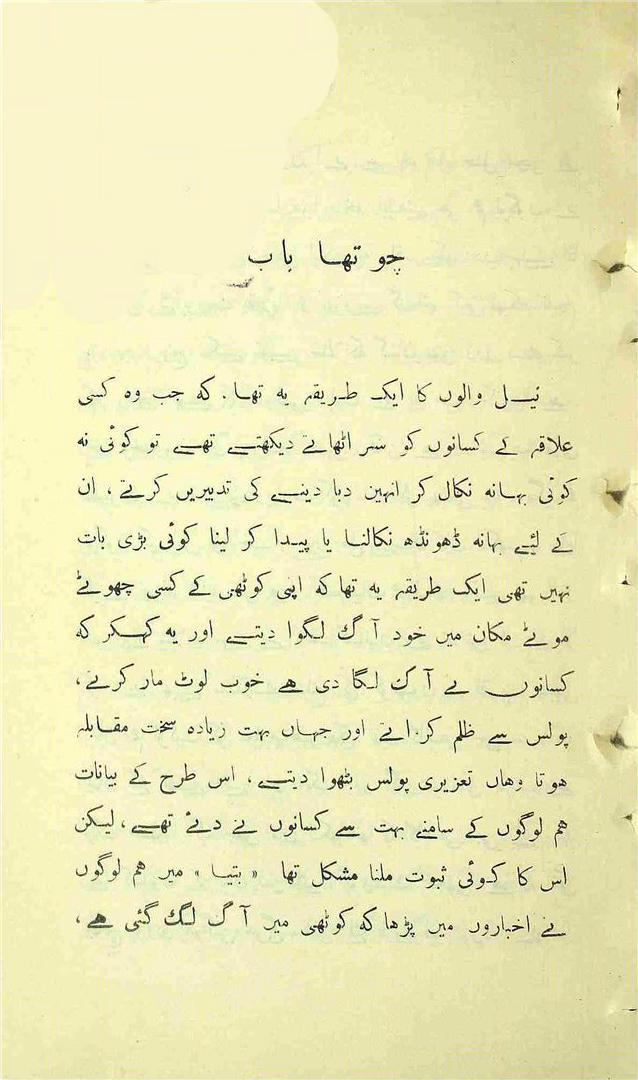 چوتھا باب
نیل والوں کا ایک طریقہ یہ تھا. کہ جب وہ کسی
علاقہ کے کسانوں کو سر اٹھاتے دیکھتے تھے تو کوئی نہ
کوئی بہانہ نکال کر انہین دبا دینے کی تدبیریں کرتے، ان
کے لئیے بہانہ ڈھونڈھ نکالنا یا پیدا کر لینا کوئی بڑی بات
نہیں تھی ایک طریقہ یہ تھا کہ اپی کوٹھی کے کسی چھوٹے
موٹے مکان میں خود آگ لگوا دیتے اور یہ کہکر کہ
کسانوں نے آگ لگا دی ہے خوب لوٹ مار کرتے،
پولس سے ظلم کراتے اور جہاں بہت زیادہ سخت مقابلہ
ہوتا وہاں تعزیری پولس بٹھوا دیتے، اس طرح کے بیانات
ہم لوگوں کے سامنے بہت سے کسانوں نے دئے تھے، لیکن
اس کا کوئی ثبوت ملنا مشکل تھا «بتیا» میں ہم لوگوں
نے اخباروں میں پڑھا کہ کوٹھی میں آگ لگ گئی ہے،